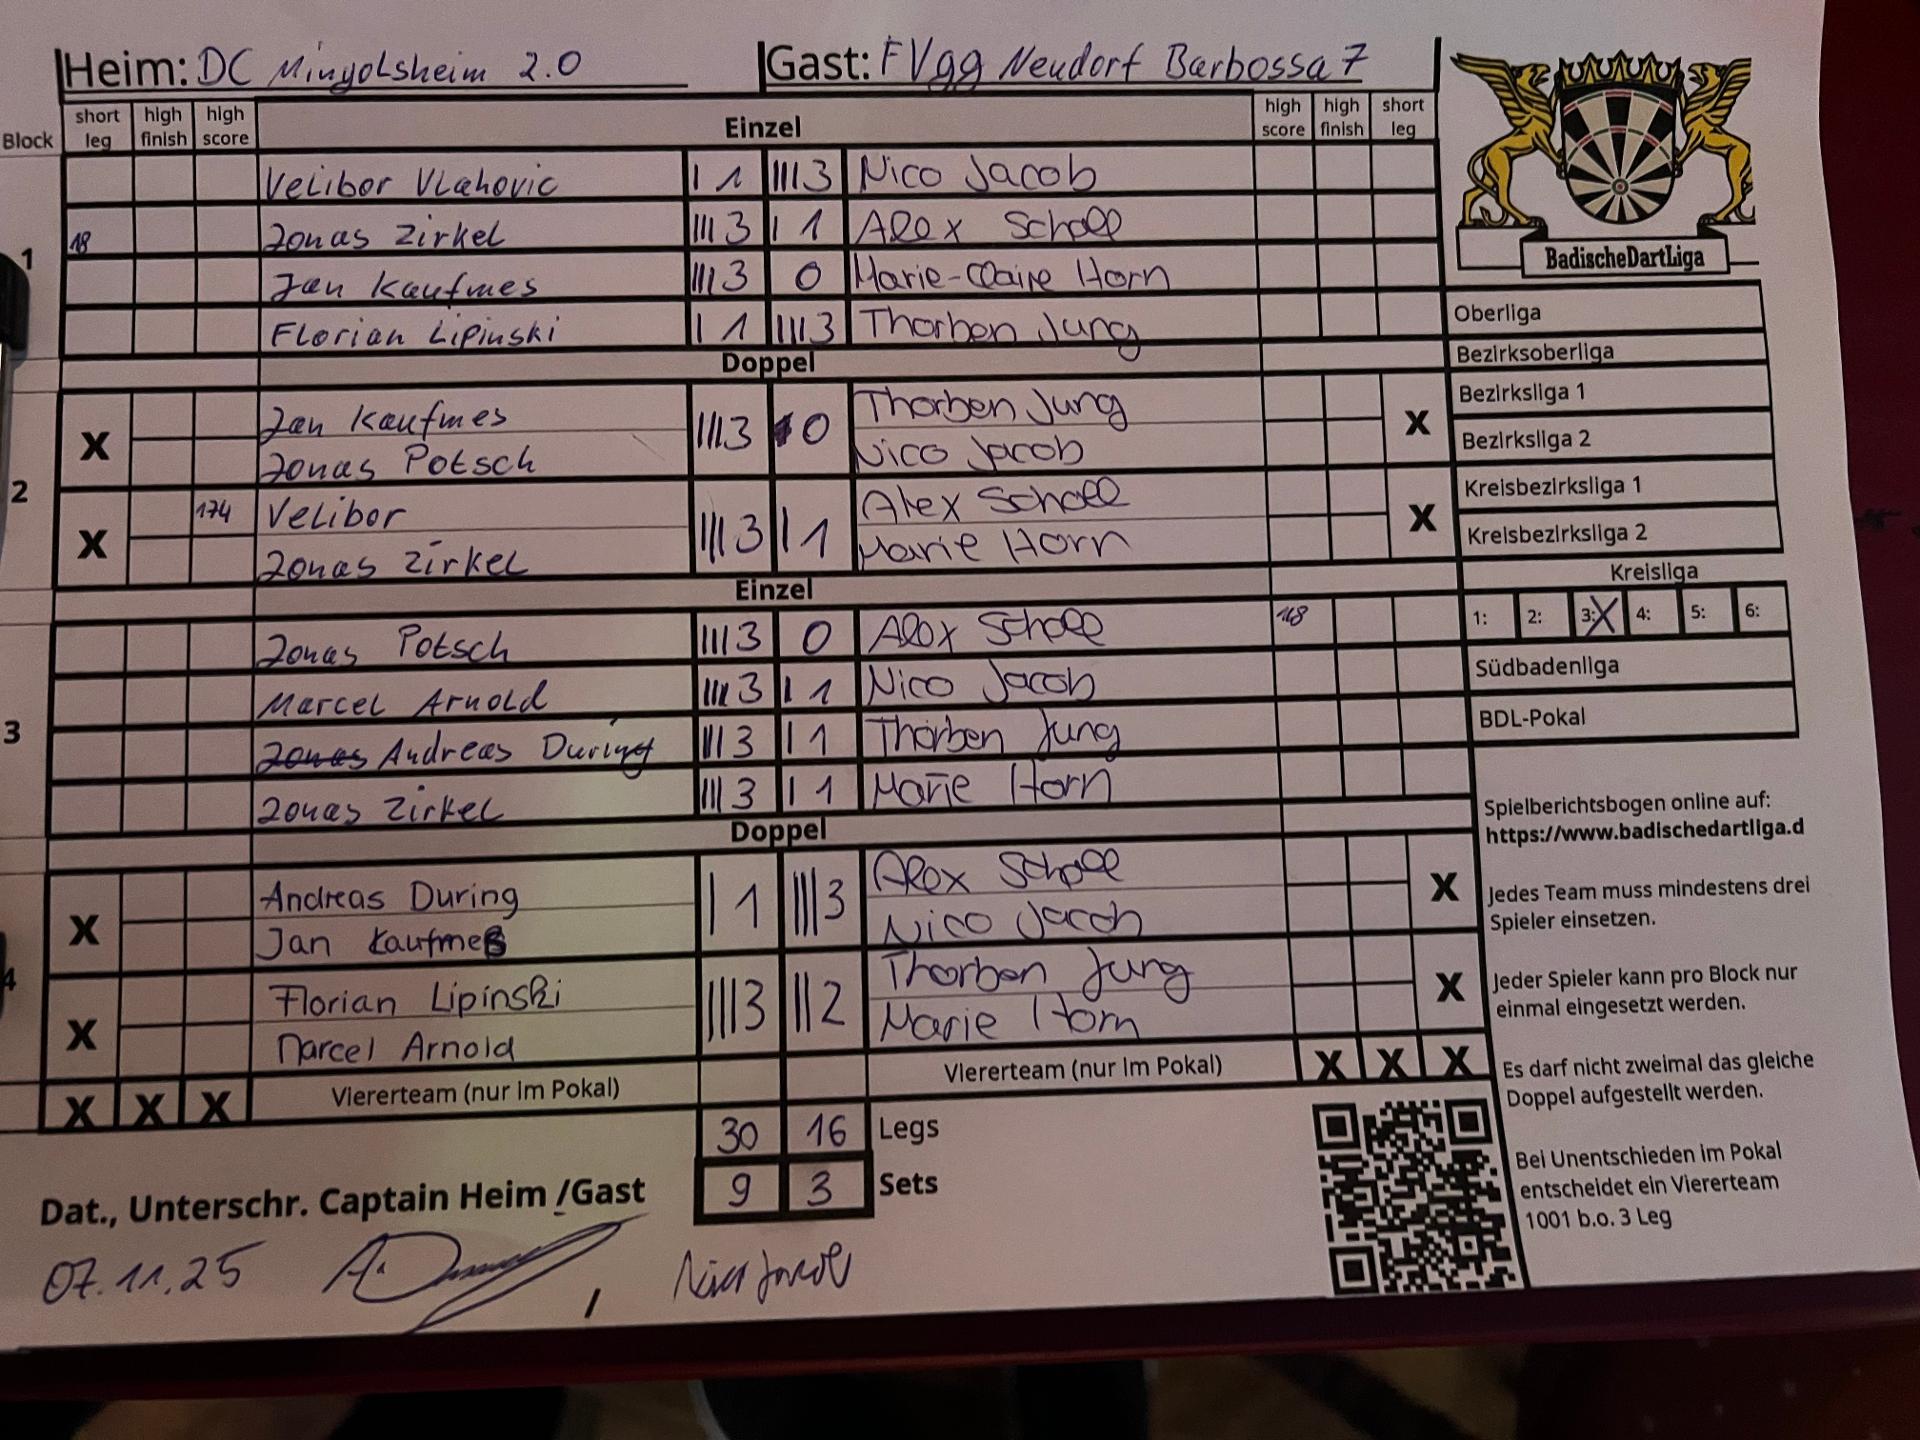 Heim: DC Mingolsheim 2.0 Gast: FVgg Neudorf Barbossa 7
Block short leg high finish high score Einzel high score high finish short leg
Velibor Vlahovic I 1 III 3 Nico Jacob
1 18 Jonas Zirkel III 3 I 1 Alex Scholl
Jan Kaufmes III 3 0 Marie-Claire Horn
Florian Lipinski I 1 III 3 Thorben Jung
Doppel
X Jan Kaufmes III 3 0 Thorben Jung X
Jonas Potsch Nico Jacob
2
X 174 Velibor III 3 I 1 Alex Scholl X
Jonas Zirkel Marie Horn
Einzel
Jonas Potsch III 3 0 Alex Scholl
Marcel Arnold III 3 I 1 Nico Jacob
3 Andreas During III 3 I 1 Thorben Jung
Jonas Zirkel III 3 I 1 Marie Horn
Doppel
X Andreas During I 1 III 3 Alex Scholl X
Jan Kaufmes Nico Jacob
4
X Florian Lipinski III 3 II 2 Thorben Jung X
Marcel Arnold Marie Horn
X X X Viererteam (nur im Pokal) Viererteam (nur im Pokal) X X X
30 16 Legs
9 3 Sets
Dat., Unterschr. Captain Heim /Gast
07.11.25
BadischeDartLiga
Oberliga
Bezirksoberliga
Bezirksliga 1
Bezirksliga 2
Kreisbezirksliga 1
Kreisbezirksliga 2
Kreisliga
1: 2: 3: X 4: 5: 6:
Südbadenliga
BDL-Pokal
Spielberichtsbogen online auf:
https://www.badischedartliga.d
Jedes Team muss mindestens drei
Spieler einsetzen.
Jeder Spieler kann pro Block nur
einmal eingesetzt werden.
Es darf nicht zweimal das gleiche
Doppel aufgestellt werden.
Bei Unentschieden im Pokal
entscheidet ein Viererteam
1001 b.o. 3 Leg